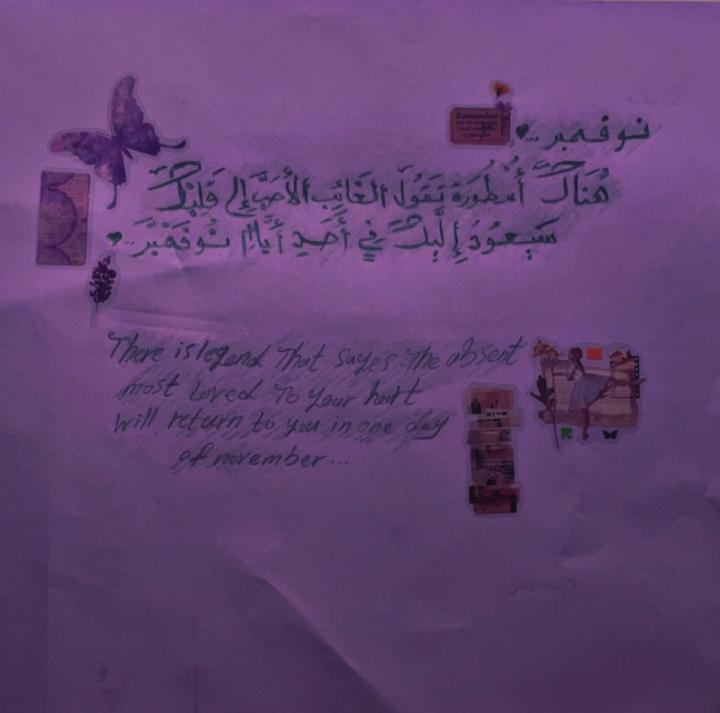 نوفمبر...
هُنَاكَ أُسْطُورَة تَقُولَ الغَائِب الأَحَبَّ إِلى قَلبِكَ
سَيعُودُ إِلَيكَ في أَحَدِ أَيَّام نُوفَمْبَرَ..
Remember
There is legend That sayes The absent
most loved To your hart
will return to you in one day
of november...